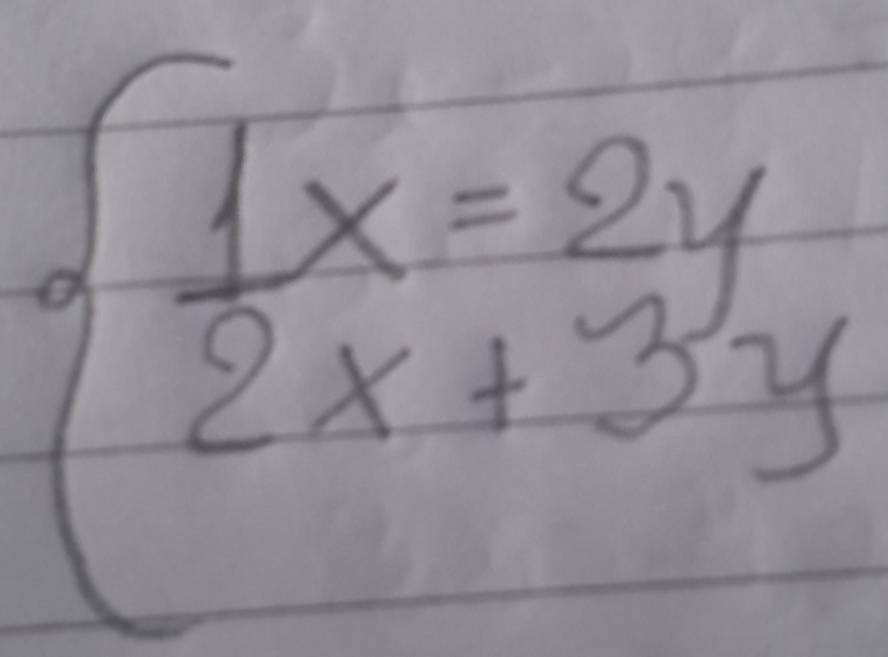 1x = 2y
2x + 3y